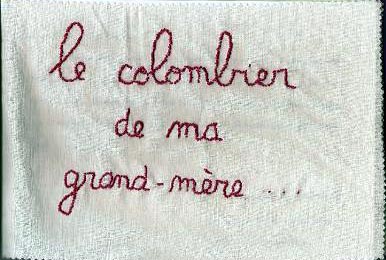 le colombier
de ma
grand-mère ...